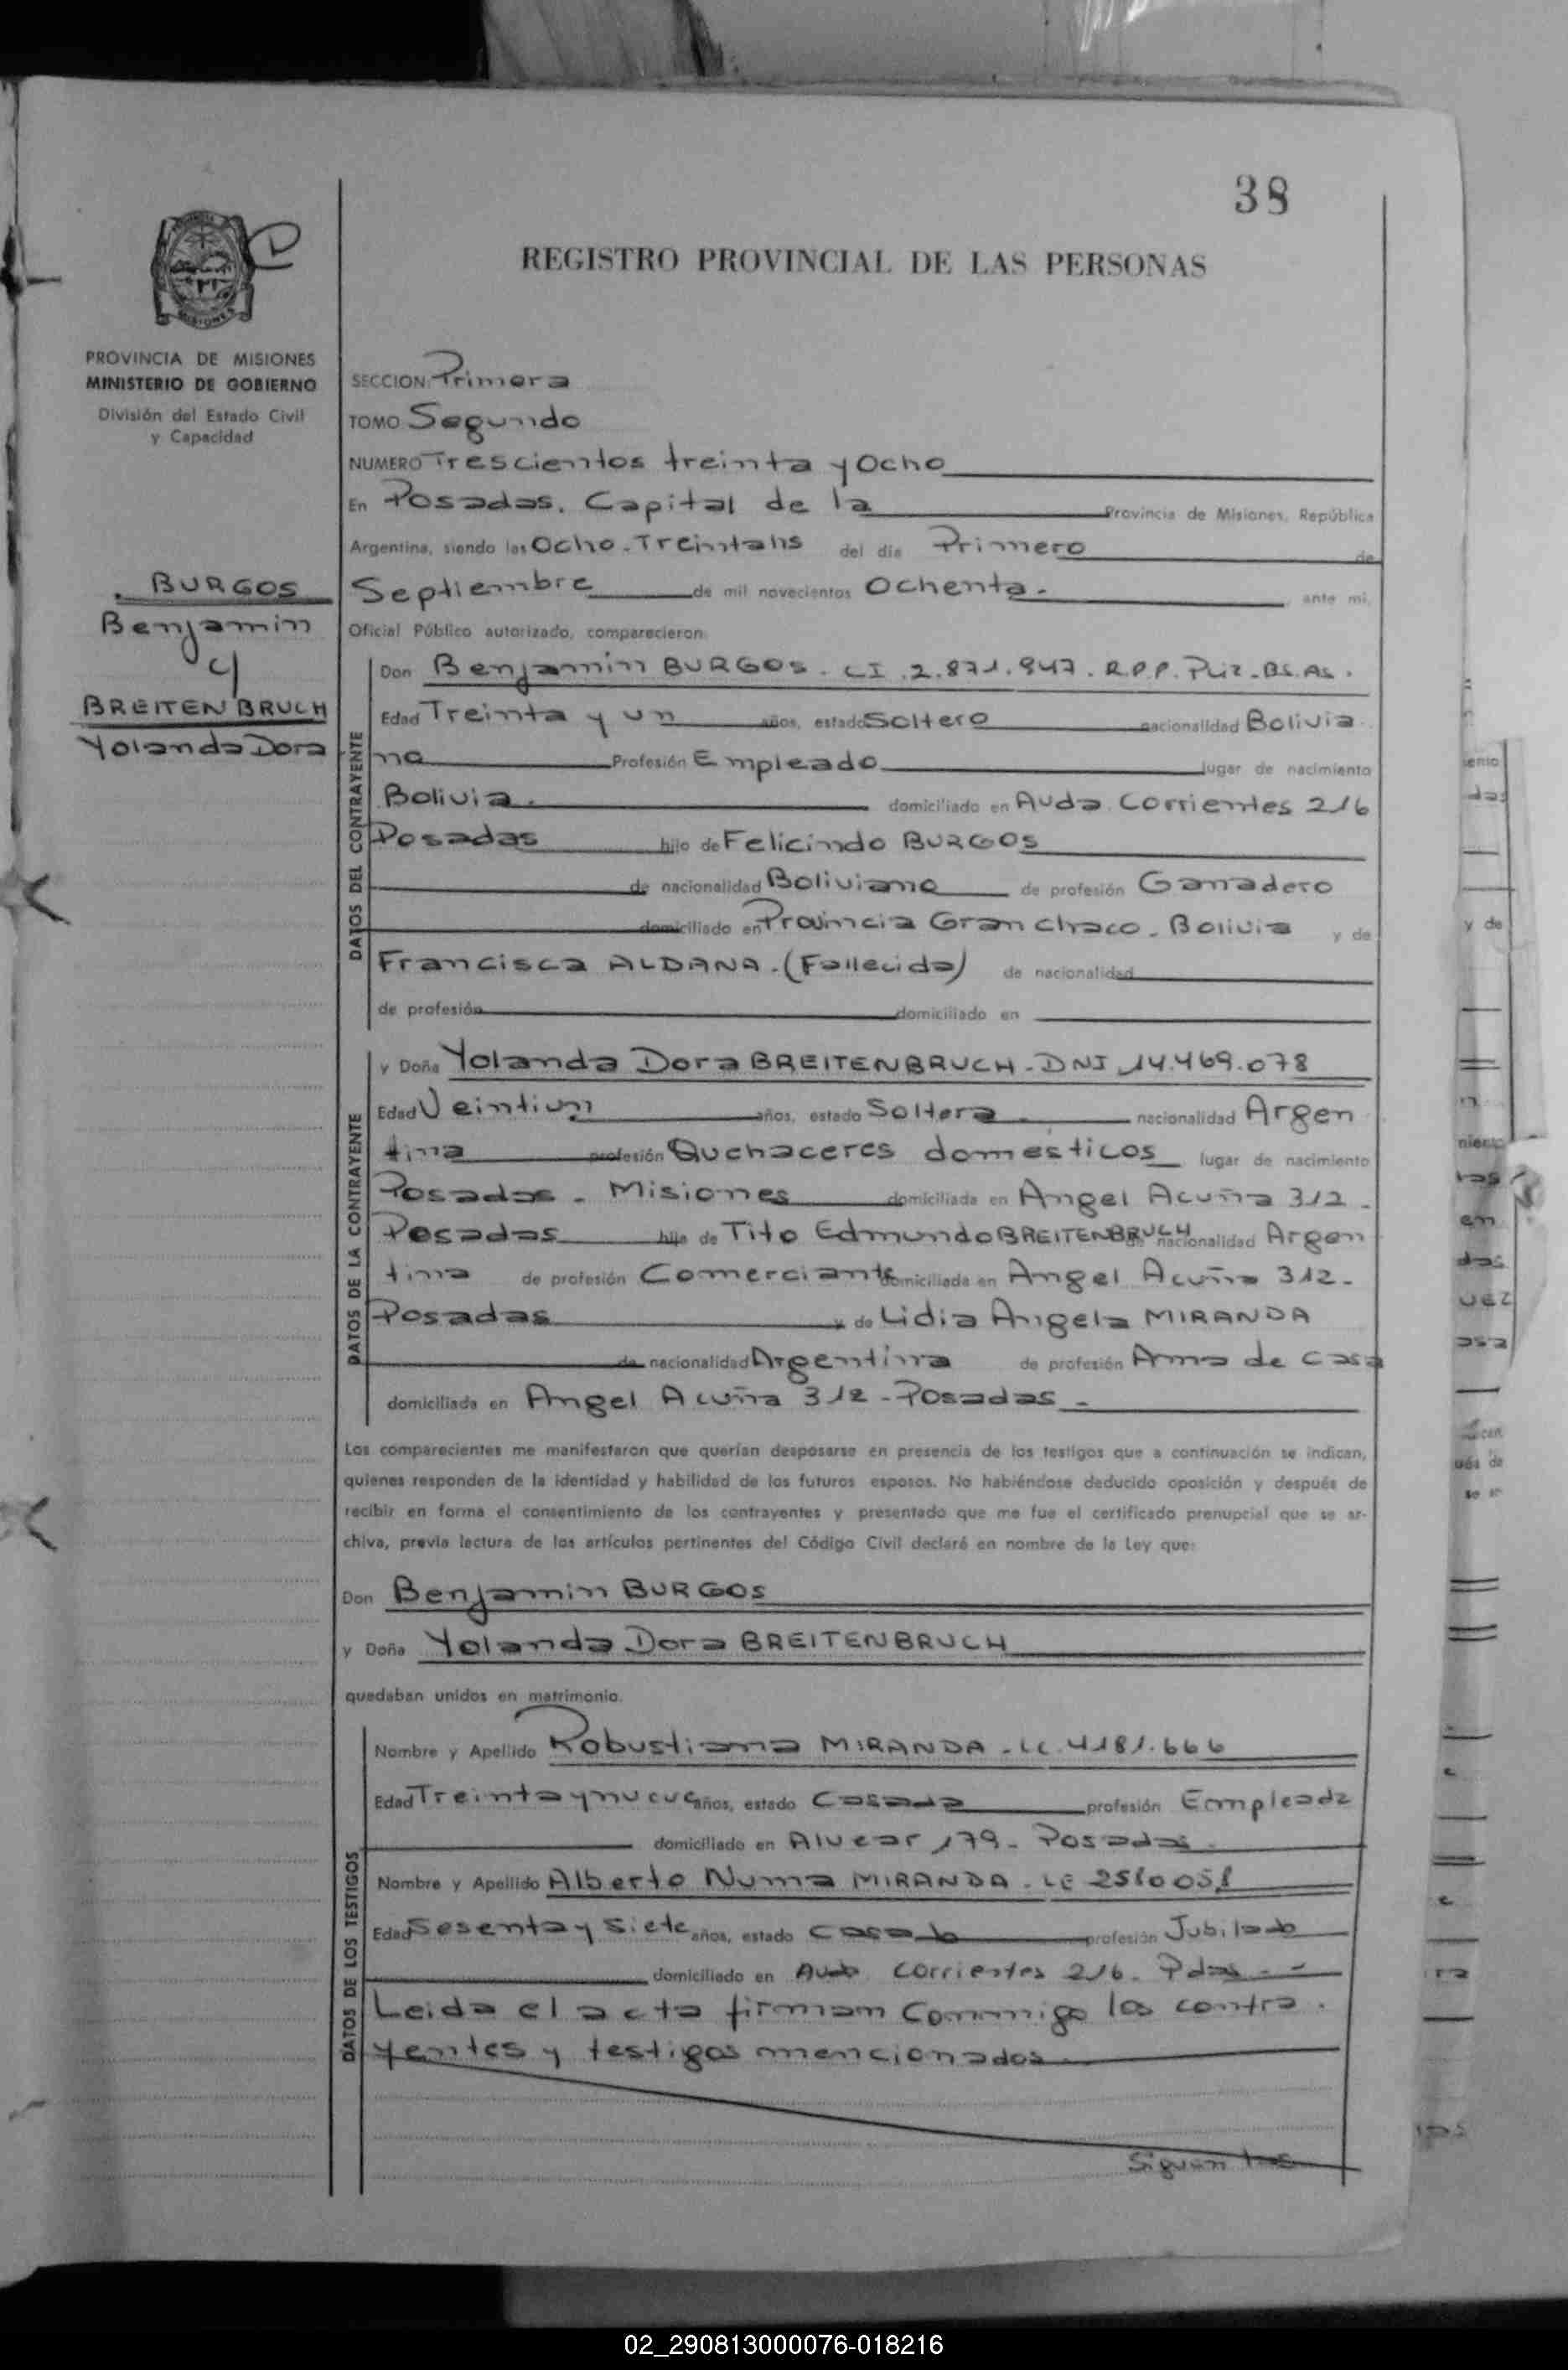 38
REGISTRO PROVINCIAL DE LAS PERSONAS
MISIONES
PROVINCIA DE MISIONES
MINISTERIO DE GOBIERNO
División del Estado Civil
y Capacidad
BURGOS
Benjamin
c/
BREITENBRUCH
Yolanda Dora
SECCION: Primera
TOMO Segundo
NUMERO Trescientos treinta y Ocho
En Posadas. Capital de la Provincia de Misiones, República
Argentina, siendo las Ocho. Treinta hs del día Primero de
Septiembre de mil novecientos Ochenta. ante mi,
Oficial Público autorizado, comparecieron:
DATOS DEL CONTRAYENTE
Don Benjamin BURGOS. CI. 2.871.947. R.P.P. Pliz. Bs. As.
Edad Treinta y un años, estado Soltero nacionalidad Bolivia
no Profesión Empleado lugar de nacimiento
Bolivia. domiciliado en Avda. Corrientes 216
Posadas hijo de Felicindo BURGOS
de nacionalidad Boliviano de profesión Ganadero
domiciliado en Provincia Gran Chaco. Bolivia y de
Francisca ALDANA. (Fallecida) de nacionalidad
de profesión domiciliado en
DATOS DE LA CONTRAYENTE
y Doña Yolanda Dora BREITENBRUCH. DNI 14.469.078
Edad Veintiun años, estado Soltera. nacionalidad Argen
tina profesión Quehaceres domesticos lugar de nacimiento
Posadas. Misiones domiciliada en Angel Acuña 312.
Posadas hija de Tito Edmundo BREITENBRUCH de nacionalidad Argen
tina de profesión Comerciante domiciliada en Angel Acuña 312.
Posadas y de Lidia Angela MIRANDA
de nacionalidad Argentina de profesión Ama de casa
domiciliada en Angel Acuña 312 - Posadas.
Los comparecientes me manifestaron que querían desposarse en presencia de los testigos que a continuación se indican,
quienes responden de la identidad y habilidad de los futuros esposos. No habiéndose deducido oposición y después de
recibir en forma el consentimiento de los contrayentes y presentado que me fue el certificado prenupcial que se ar-
chiva, previa lectura de los artículos pertinentes del Código Civil declaré en nombre de la Ley que:
Don Benjamin BURGOS
y Doña Yolanda Dora BREITENBRUCH
quedaban unidos en matrimonio.
DATOS DE LOS TESTIGOS
Nombre y Apellido Robustiana MIRANDA. LC. 4181.666
Edad Treinta y nueve años, estado Casada profesión Empleada
domiciliado en Alvear 179. Posadas.
Nombre y Apellido Alberto Numa MIRANDA. LE 2510051
Edad Sesenta y Siete años, estado Casado profesión Jubilado
domiciliado en Avda Corrientes 216. Pdas. -
Leida el acta firman Conmigo los contra.
yentes y testigos mencionados.
Siguen las
02_290813000076-018216